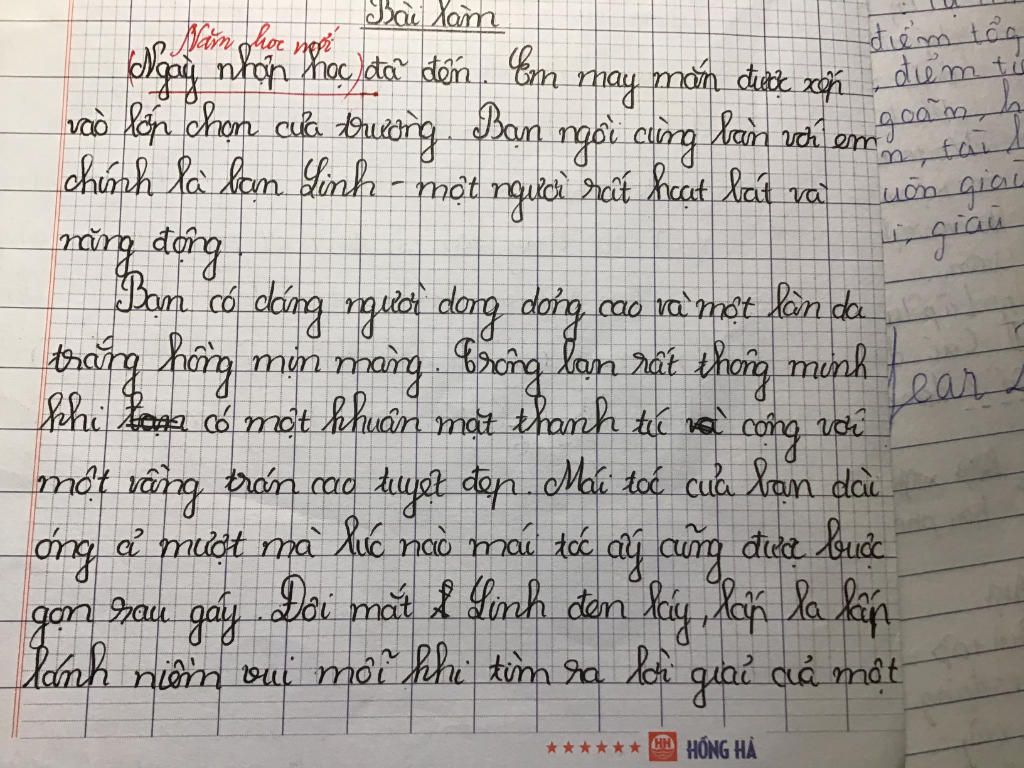 Bài làm
Năm học mới
(Ngày nhận học) đã đến. Em may mắn được xếp
vào lớp chọn của trường. Bạn ngồi cùng bàn với em
chính là bạn Linh – một người rất hoạt bát và
năng động
Bạn có dáng người dong dỏng cao và một làn da
trắng hồng mịn màng. Trông bạn rất thông minh
khi có một khuân mặt thanh tú cộng với
một vầng trán cao tuyệt đẹp. Mái tóc của bạn dài
óng ả mượt mà lúc nào mái tóc ấy cũng được buộc
gọn sau gáy. Đôi mắt Linh đen láy, lấp la lấp
lánh niềm vui mỗi khi tìm ra lời giải của một
điểm tốt
, điểm
goãn,
n, tài
uôn giàu
i, giàu
ear
★★★★★★ HH HỒNG HÀ